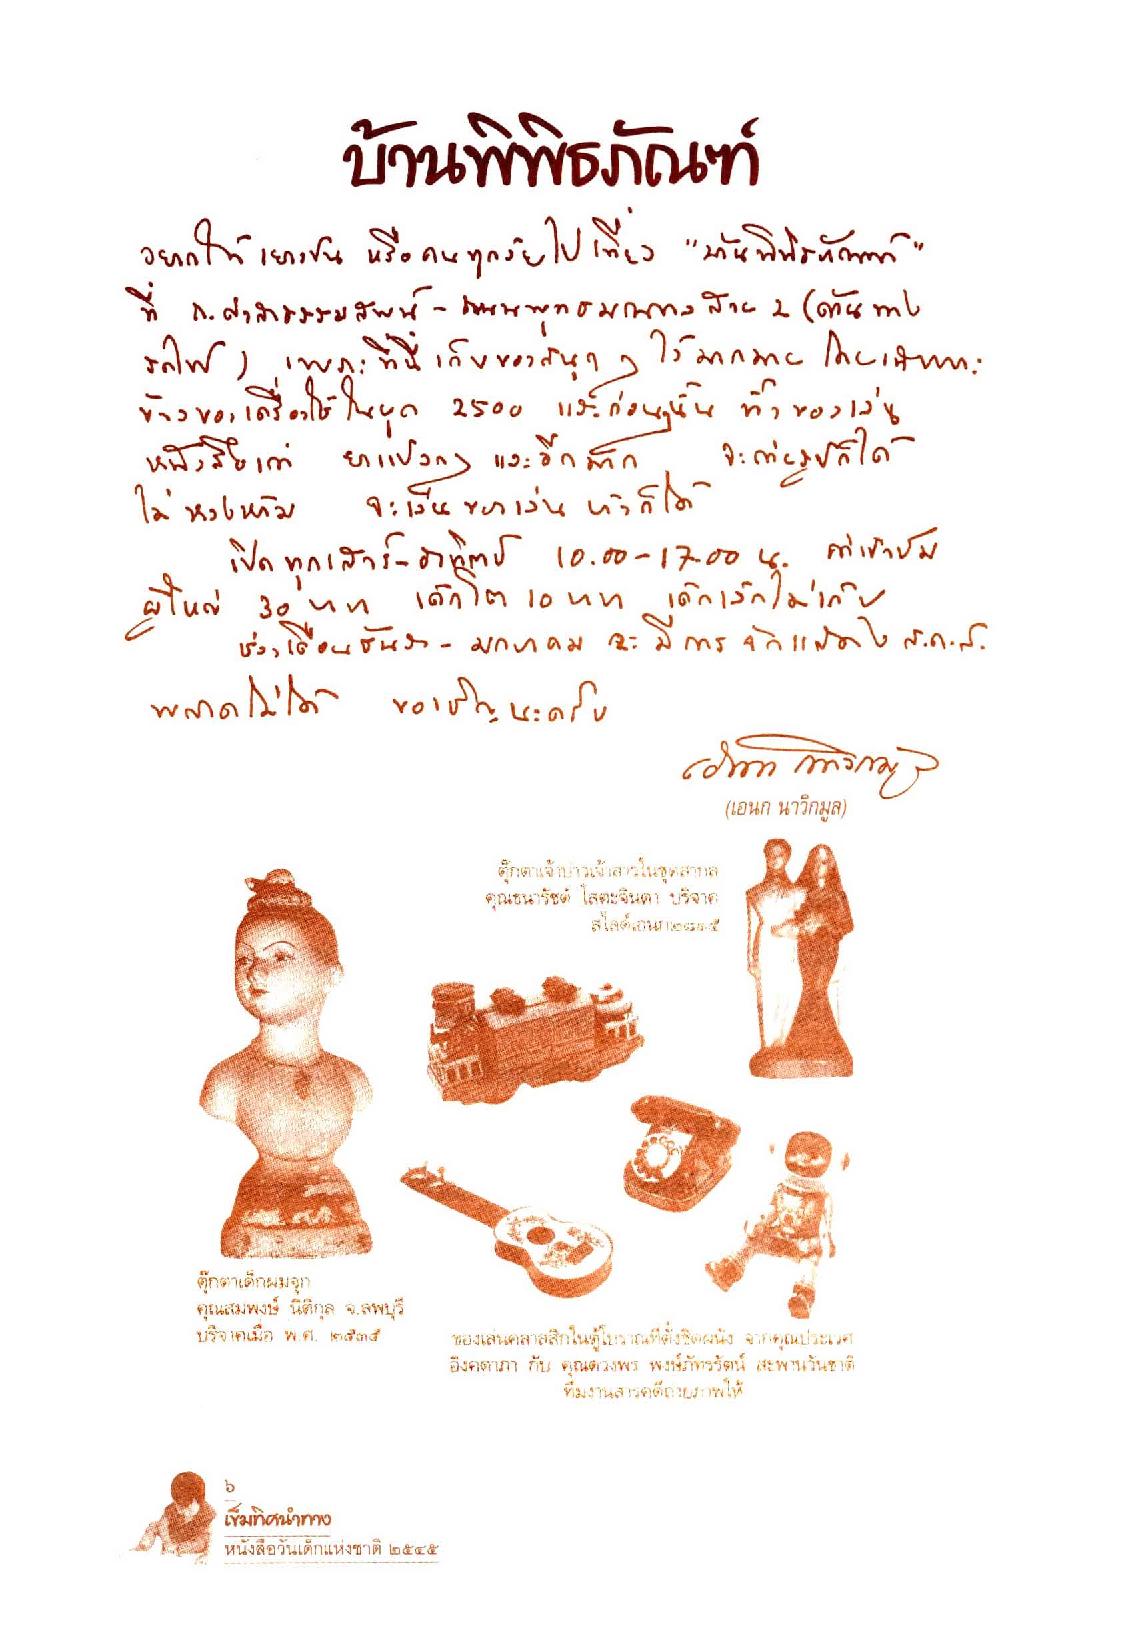 บ้านพิพิธภัณฑ์
อยากให้ เยาวชน หรือคนทุกวัยไปเที่ยว "บ้านพิพิธภัณฑ์"
ที่ ถ.ศาลาธรรมสพน์ - ถนนพุทธมณฑลสาย 2 (ด้านทาง
รถไฟ) เพราะที่นี่เก็บของสนุกๆ ไว้มากมาย โดยเฉพาะ
ข้าวของเครื่องใช้ในยุค 2500 และก่อนนั้น ทั้งของเล่น
หนังสือเก่า ยาแปลกๆ และอีกมาก จะถ่ายรูปก็ได้
ไม่หวงห้าม จะเดินชมเล่น ก็ได้
เปิดทุกเสาร์-อาทิตย์ 10.00-17.00 น. ค่าเข้าชม
ผู้ใหญ่ 30 บาท เด็กโต 10 บาท เด็กเล็กไม่เก็บ
ช่วงเดือนธันวา - มกราคม จะมีการจัดแสดง ส.ค.ส.
พลาดไม่ได้ ขอเชิญนะครับ
(เอนก นาวิกมูล)
ตุ๊กตาเจ้าบ่าวเจ้าสาวในชุดสากล
คุณธนารัชต์ โสตะจินดา บริจาค
สไลด์เอนก
ตุ๊กตาเด็กผมจุก
คุณสมพงษ์ นิติกุล จ.ลพบุรี
บริจาคเมื่อ พ.ศ. ๒๕๓๕
ของเล่นคลาสสิกในตู้โบราณที่ตั้งชิดผนัง จากคุณประเวศ
อิงคตาภา กับ คุณดวงพร พงษ์ภัทรรัตน์ สะพานวันชาติ
ทีมงานสารคดีถ่ายภาพให้
๖
เข็มทิศนำทาง
หนังสือวันเด็กแห่งชาติ ๒๕๔๕